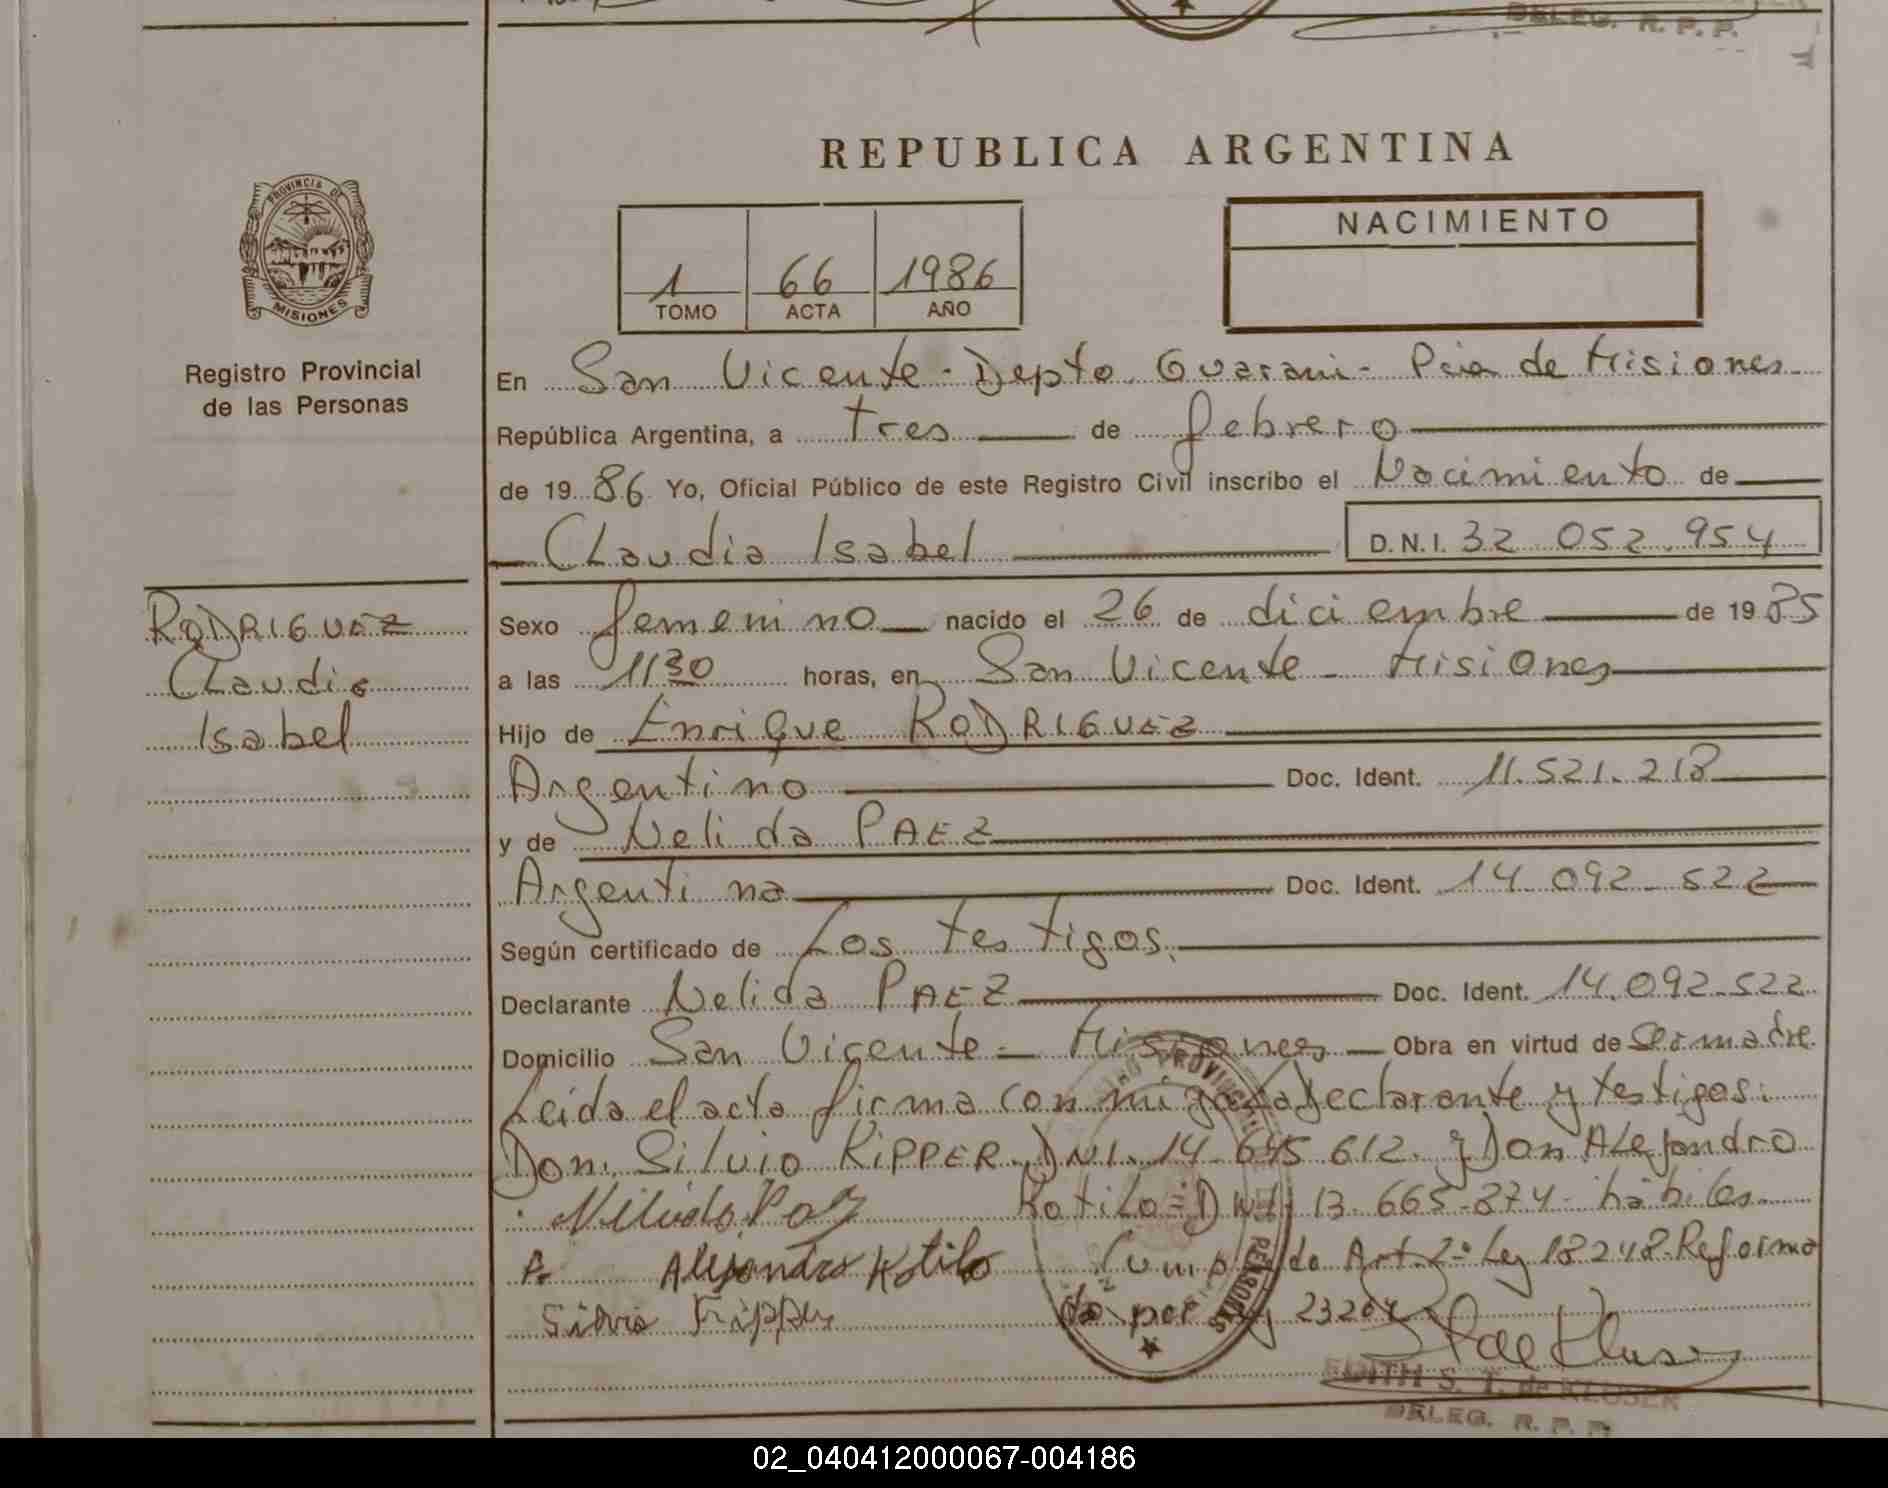 DELEG. R. P. P.
REPUBLICA ARGENTINA
PROVINCIA DE
MISIONES
Registro Provincial
de las Personas
NACIMIENTO
1 66 1986
TOMO ACTA AÑO
En San Vicente - Depto. Guarani - Pcia de Misiones
República Argentina, a tres de febrero
de 1986 Yo, Oficial Público de este Registro Civil inscribo el Nacimiento de
Claudia Isabel D.N.I. 32 052.954
RODRIGUEZ
Claudia
Isabel
Sexo femenino nacido el 26 de diciembre de 1985
a las 11 30 horas, en San Vicente - Misiones
Hijo de Enrique RODRIGUEZ
Argentino Doc. Ident. 11.521.218
y de Nelida PAEZ
Argentina Doc. Ident. 14 092 - 522
Según certificado de Los testigos.
Declarante Nelida PAEZ Doc. Ident. 14.092-522
Domicilio San Vicente - Misiones Obra en virtud de ser madre
Leida el acta firma con migo la declarante y testigos:
Don. Silvio KIPPER DNI. 14-645 612. y Don Alejandro
Kotilo = DNI 13-665-874 - habiles
Alejandro Kotilo Cumplido Art. 2º Ley 18248 - Reforma
do por Ley 23264
EDITH S. T. de KLUSER
DELEG. R. P. P.
02_040412000067-004186